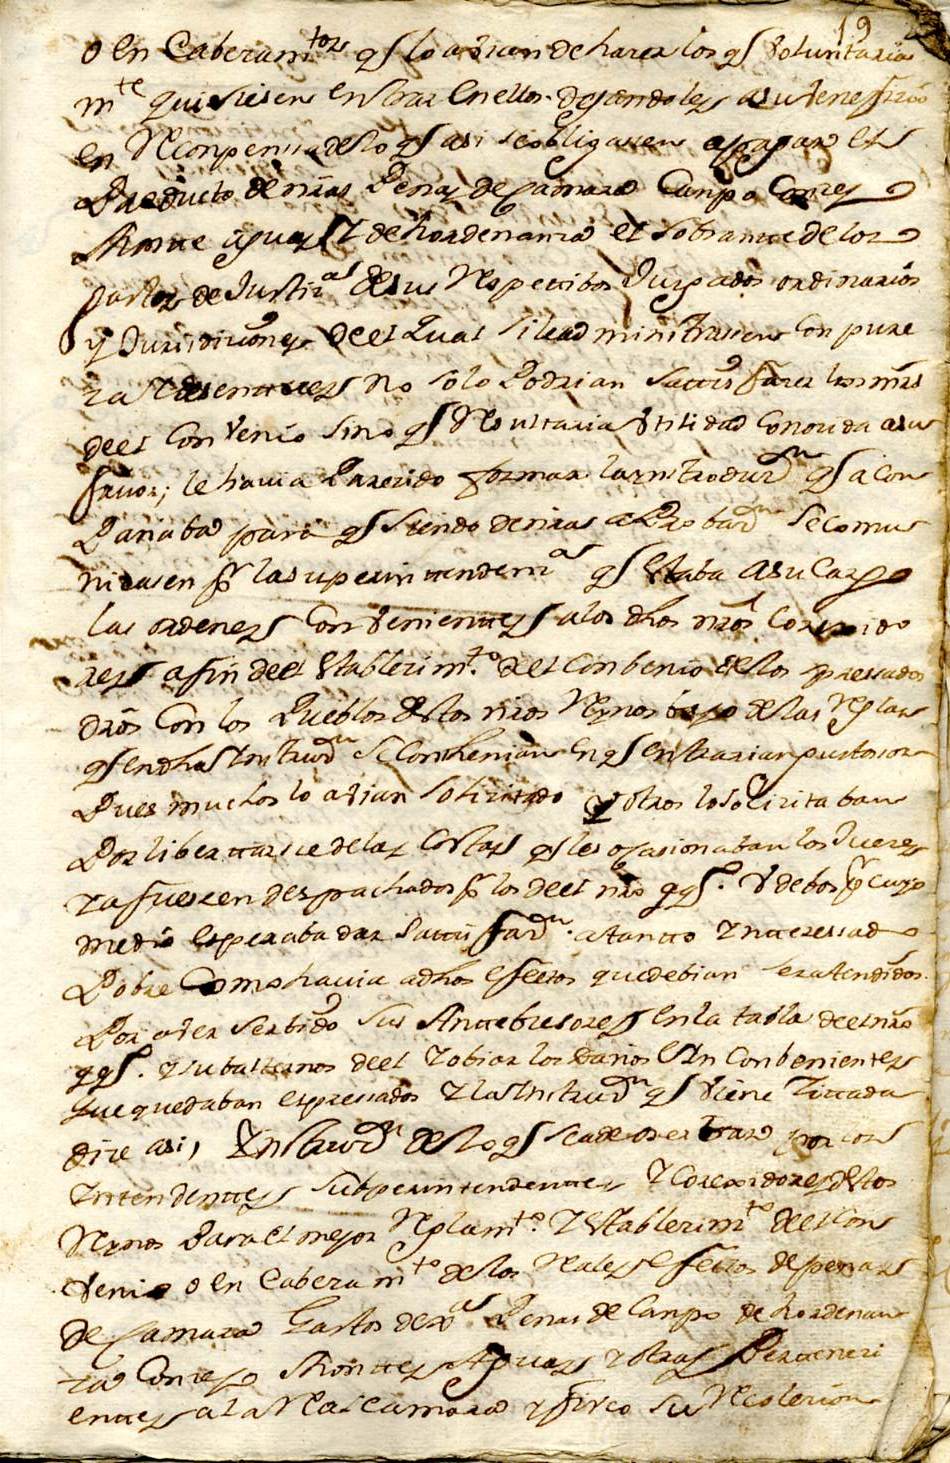 19
o en Cabezam.tos q.e lo avian de hazer los q.e voluntaria
m.te quisiesen entrar en ellos dejandoles a su beneficio
en Reconpensa de lo q.e asi se obligasen a pagar el
Producto de nras Penas de Camara Canpo Conzej
Monte aguas y de hordenanza el sobrante de los
gastos de Justiz.as de sus Respectibos Juzgados ordinarios
y Jurisdiziones de el qual si le adminitrasen con pure
za los nros
de el Convenio sino q.e Resultaria utilidad conozida a su
favor; le havia Parezido formar la yntroduz.n q.e acon
Pañaba para q.e siendo de nras aprobaz.n se comu
nicasen p.r la superintendenz.a q.e estaba a su Cargo
las ordenes convenientes a los dhos nros Correxido
res a fin de el establezim.to de el conbenio de los expresados
dros con los Pueblos destos nros Reynos de las Reglas
q.e en dha Yntruz.n se contenian en q.e entrarian gustosos
Pues muchos lo avian solizitado y otros lo solizitaban
Por libertarse de las costas q.e les ocasionaban los Juezes
ya fuesen despachados p.r los de el nro q.e debos p.r cuyo
medio esperaba dar satisfaz.n a tanto Ynteresado
Pobre como havia a dhos efectos que debian ser atendidos
Por aver serbido sus Antezesores en la tabla de el nro
y subalternos de el y obiar los daños e Yn conbenientes
que quedaban expresados y la Yntruz.n q.e viene zitada
dize asi, Ynstruz.n de lo q.e se a de observar por los
Yntendentes subperintendentes y Correxidores destos
Reynos Para el mejor Reglam.to y establezim.to de el con
venio o en Cabezam.to de los Reales efectos de penas
de Camara Gastos de Penas de Canpo de hordenan
za Conzejo Montes Aguas y otras Pertenezi
entes a la Real camara y fisco su Recolezion